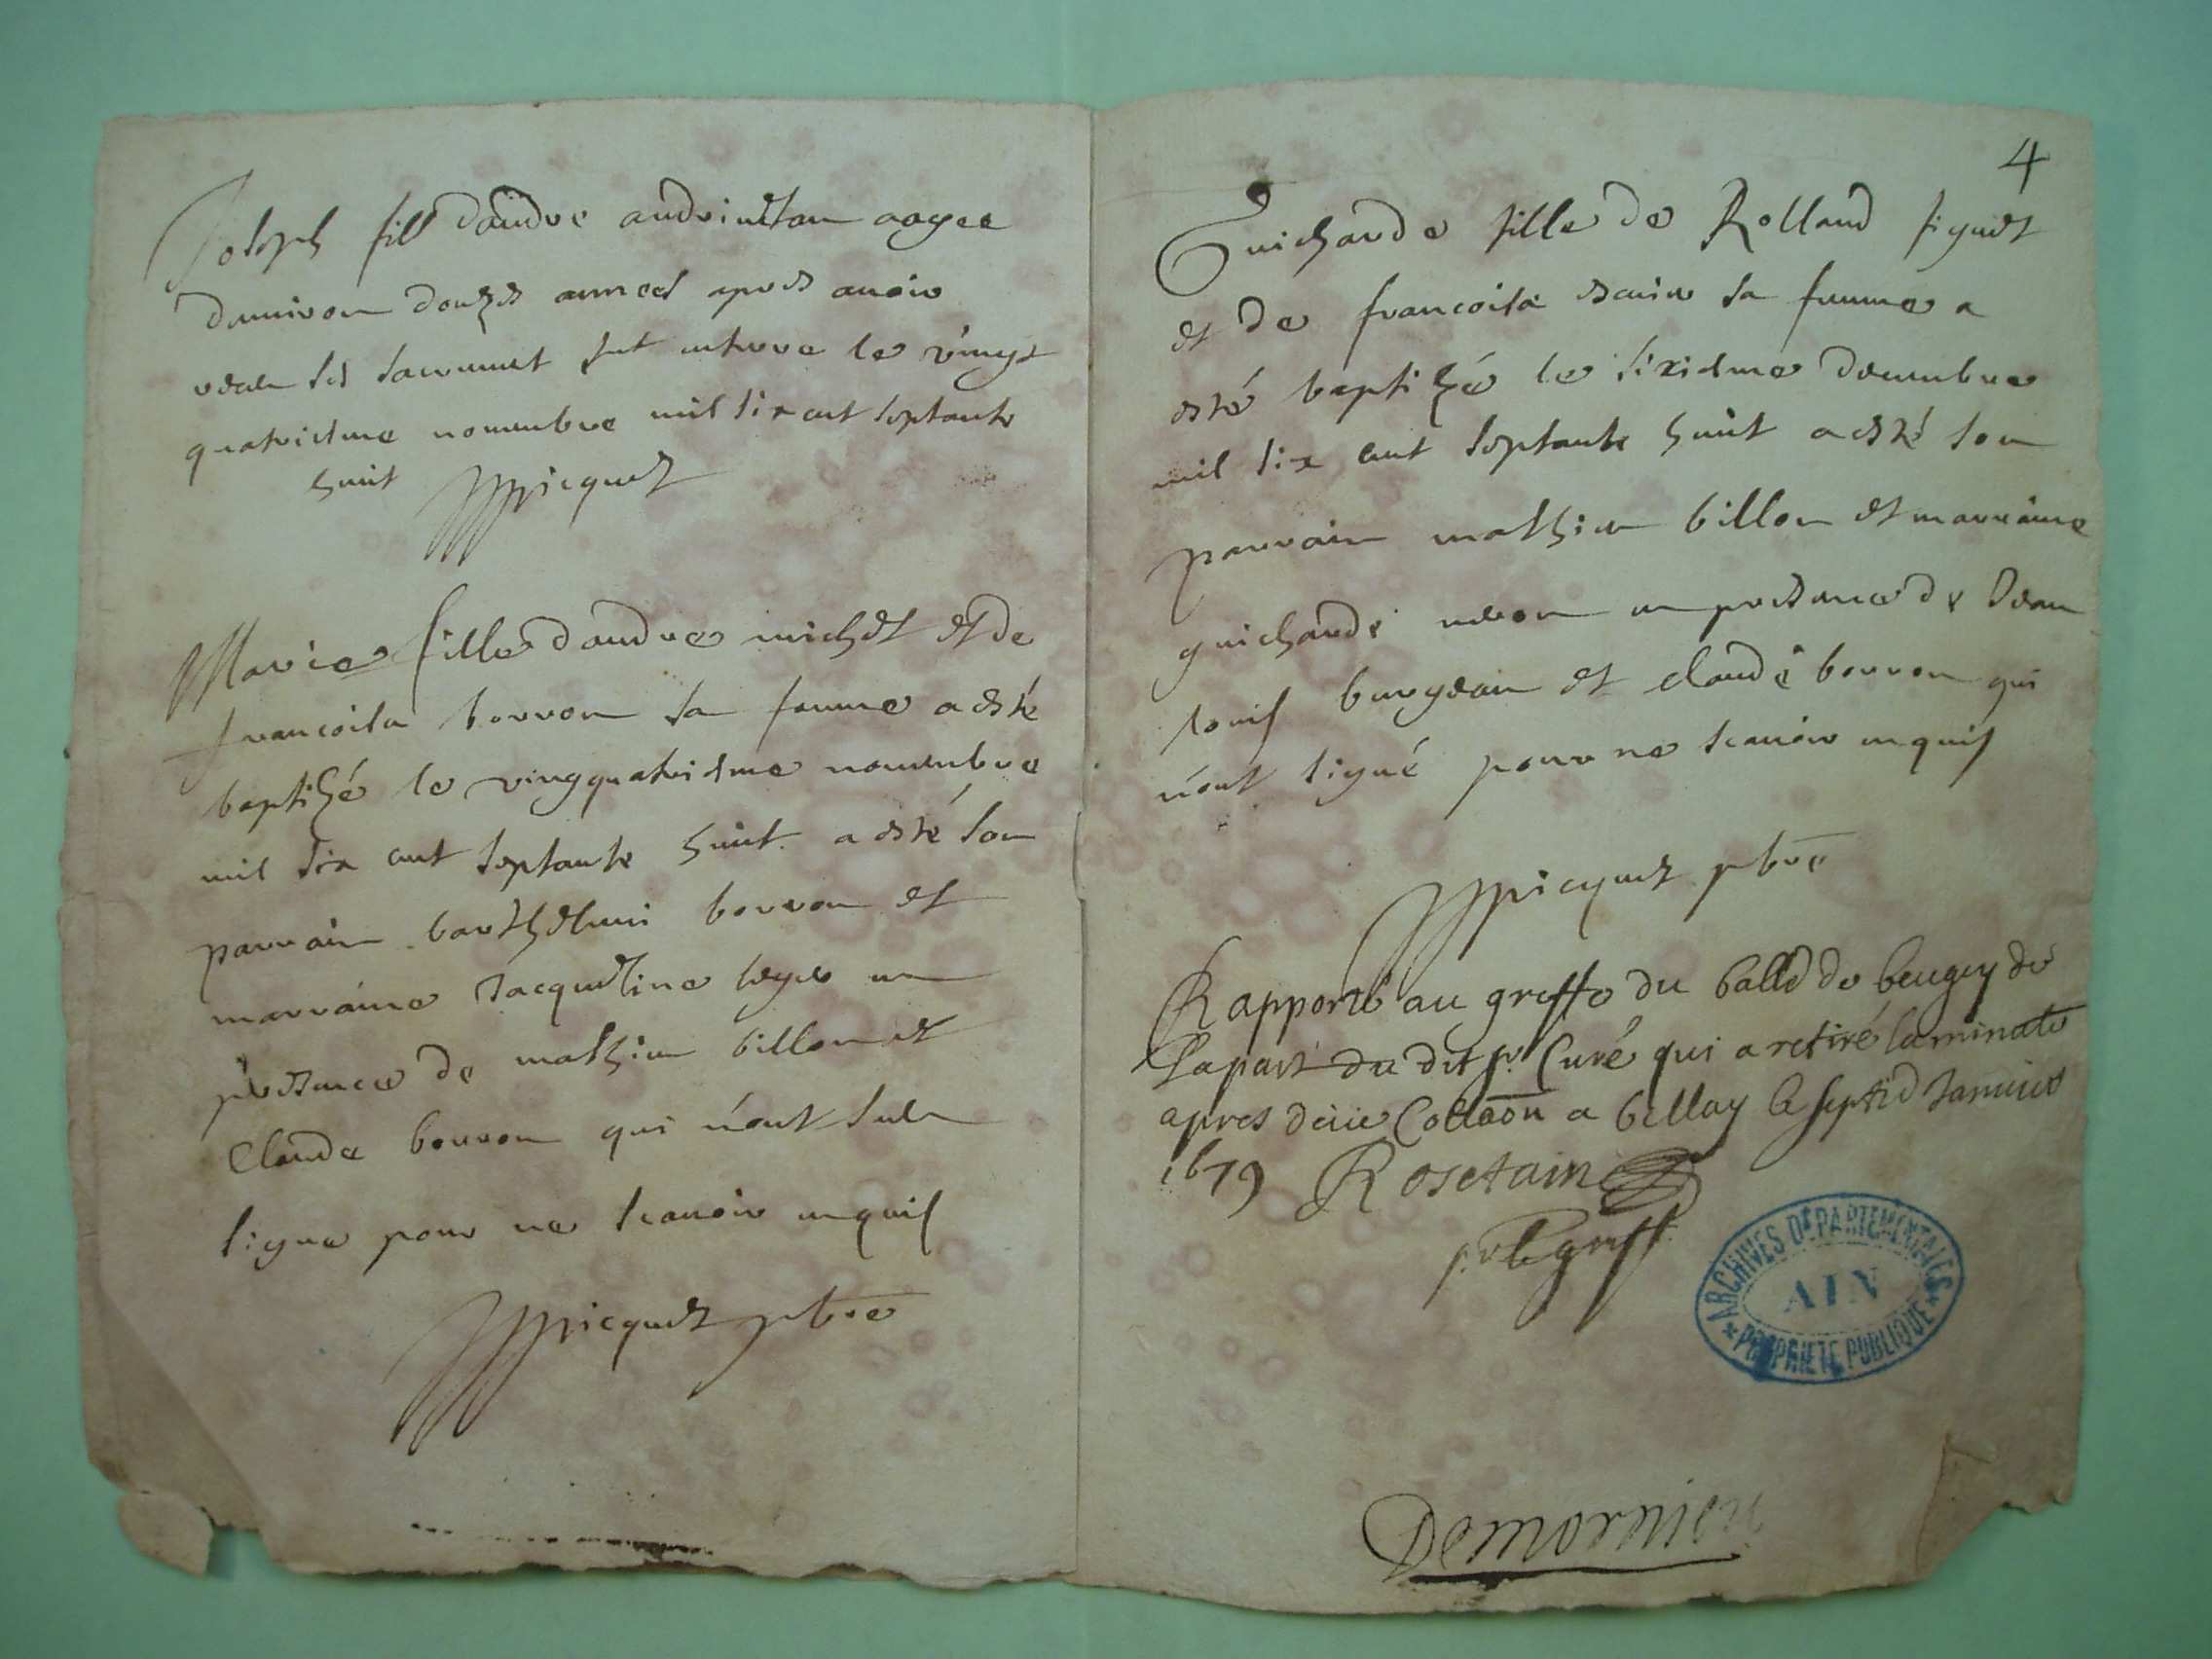 Joseph fill dandre andrinettan aagee
damiron douzes annees apres auoir
receu ses sacrement fut enterre le vingt
quatriesme nouembre mil six cent septante
huit JPpicquet
Marie fille dandre michet et de
francoise borron sa femme a esté
baptizé le vingquatriesme nouembre
mil six cent septante huit a esté son
parrain barthelmi borron et
marraine Jacquetine leger en
presence de mathieu billon et
Claude borron qui n'ont sceu
signe pour ne scauoir enquis
JPpicquet pbre
4
Guicharde fille de Rolland figuet
et de francoise sa femme a
esté baptizé le sixiesme decembre
mil six cent septante huit a esté son
parrain mathieu billon et marraine
guicharde en presence de Jean
louis burgean et claude borron qui
n'ont signé pour ne scauoir enquis
JPpicquet pbre
Rapporté au greffe du balld de beugey de
la part du dit sr. Curé qui a retiré la minute
apres deüe Collaõn a bellay le septie Januier
1679 Rosetain
p.r le greff.
ARCHIVES DÉPARTEMENTALES
AIN
* PROPRIETE PUBLIQUE *
Demornieu